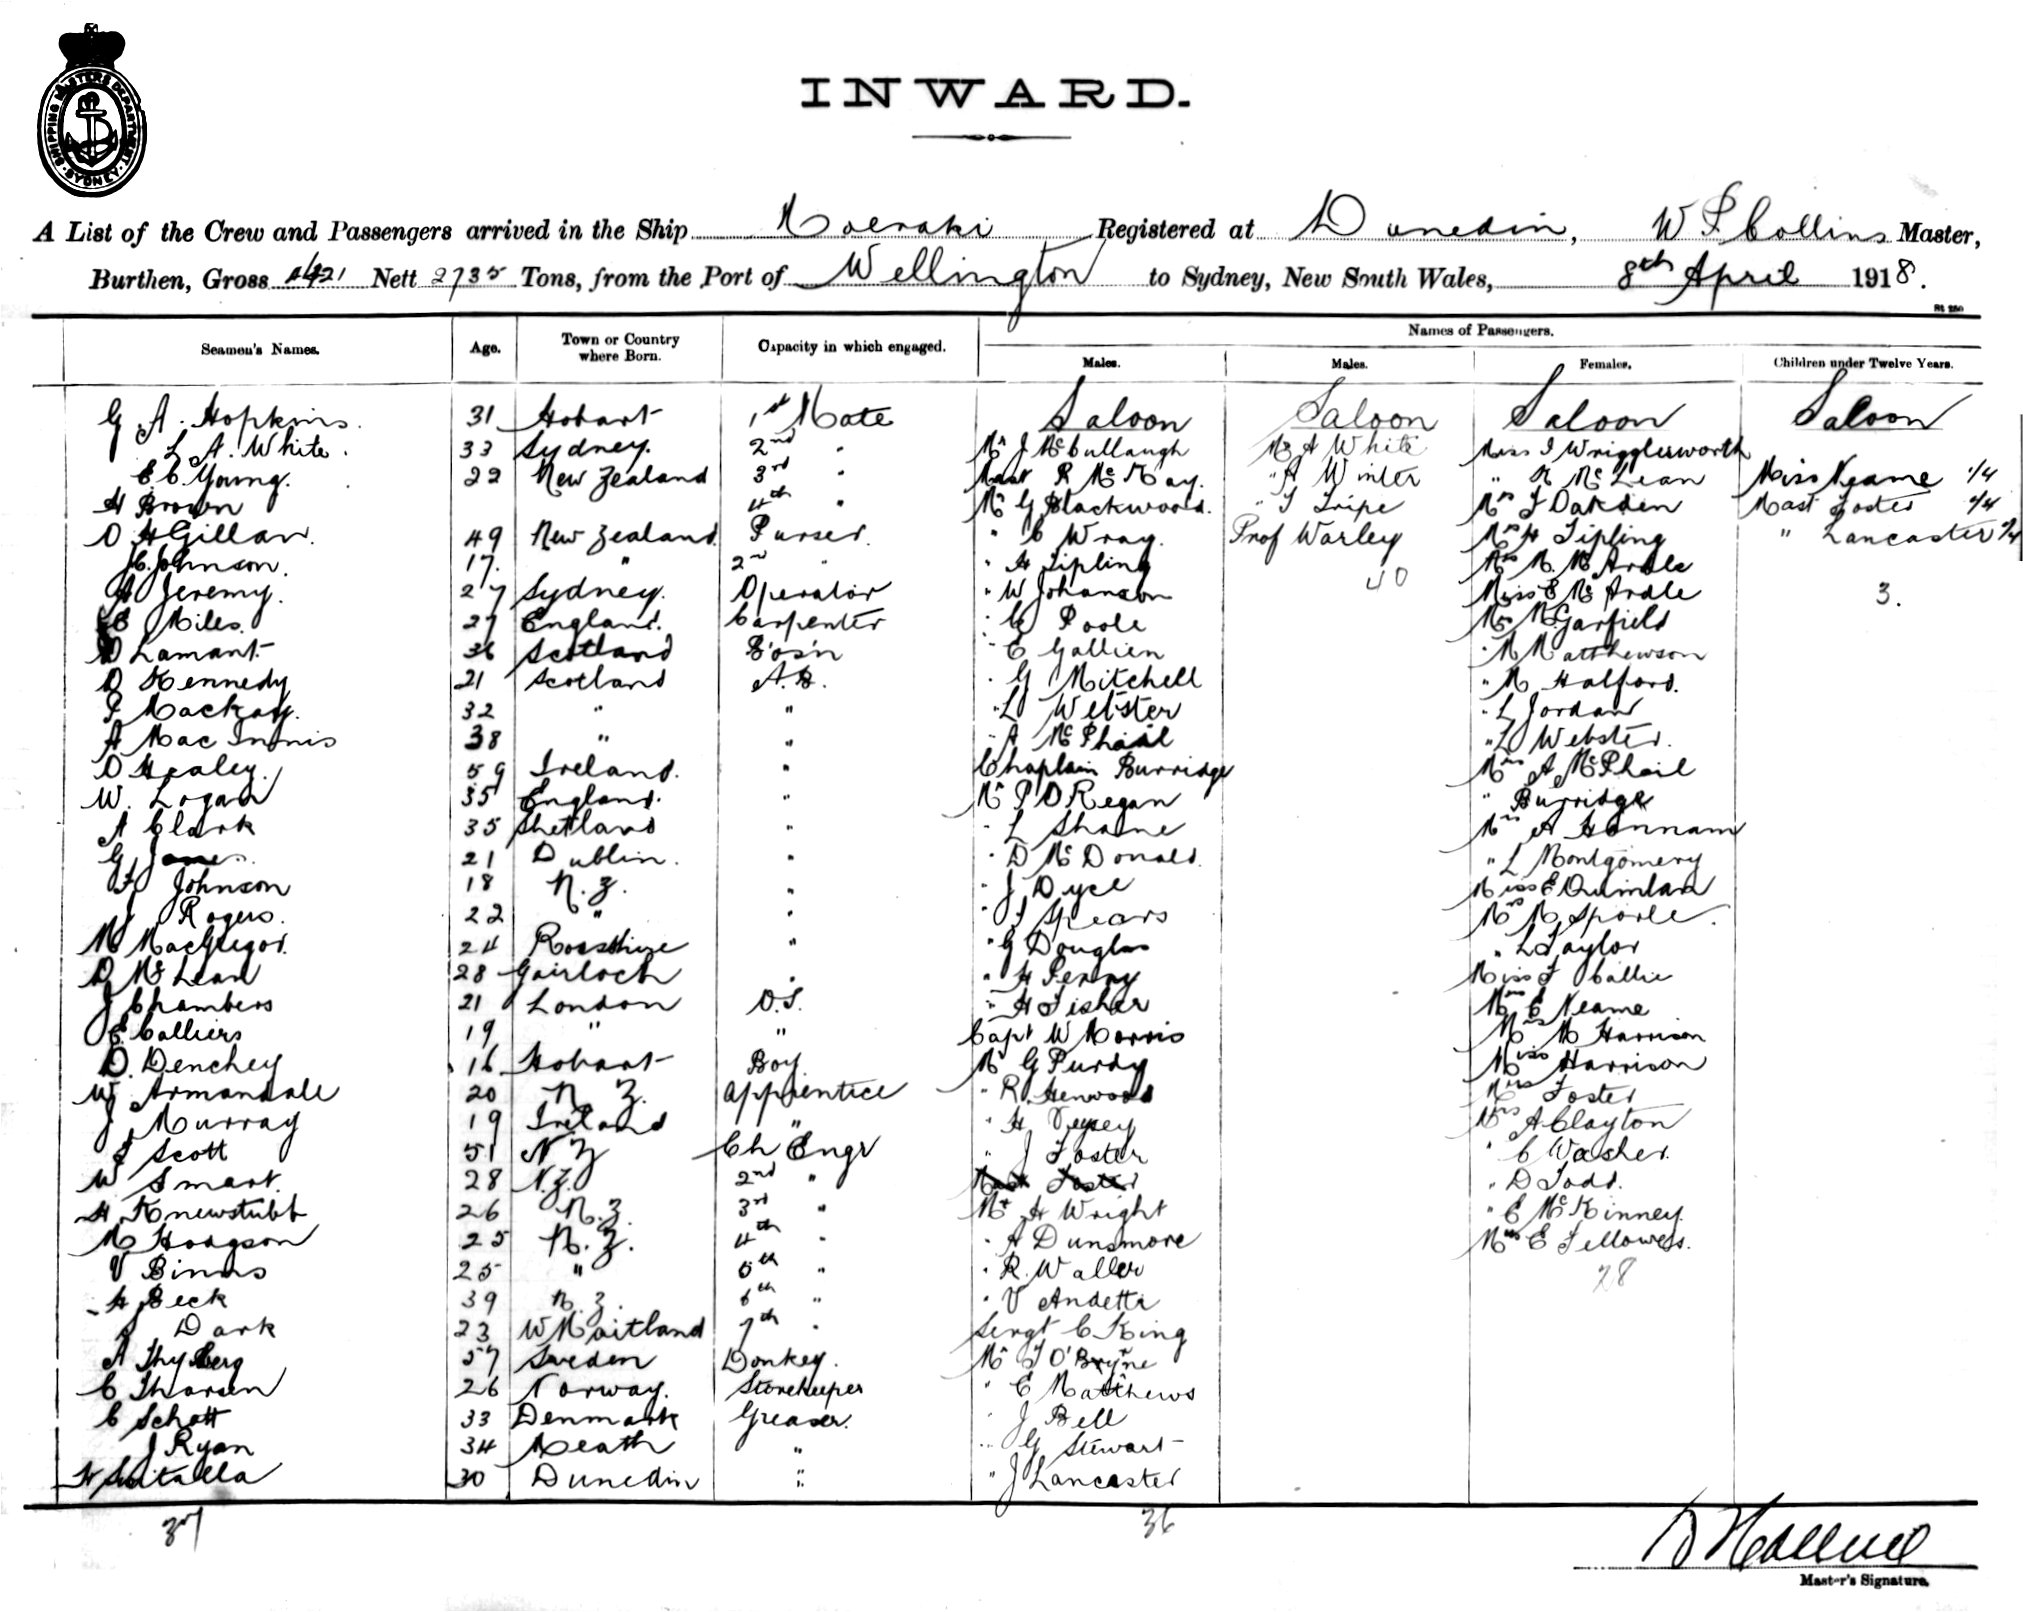 SHIPPING MASTERS DEPARTMENT. SYDNEY.
INWARD.
A List of the Crew and Passengers arrived in the Ship Moeraki Registered at Dunedin, W P Collins Master,
Burthen, Gross 4421 Nett 2735 Tons, from the Port of Wellington to Sydney, New South Wales, 8th April 1918.
Seamen's Names. Age. Town or Country where Born. Capacity in which engaged. Names of Passengers.
Males. Males. Females. Children under Twelve Years.
G A. Hopkins. 31 Hobart 1st Mate Saloon Saloon Saloon Saloon
L A. White. 33 Sydney. 2nd " Mr J McCullaugh Mr A White Miss I Wrigglesworth
E C. Young. 22 New Zealand 3rd " Mast R McKay. " A Winter " K McLean Miss Neame 1/4
H Brown 4th " Mr G Blackwood. " T Tripe Mrs F Oakden Mast Foster 1/4
D H Gillan. 49 New Zealand. Purser. " C Wray. Prof Warley Mrs H Tipling " Lancaster
C. Johnson. 17. " 2nd " " H Tipling Mrs M McArdle
A Jeremy. 27 Sydney. Operator " W Johanson 40 Miss E McArdle 3.
E Miles. 27 England. Carpenter " C Poole Mrs M Garfield
D Lamont 36 Scotland Bos'n " E Gallien " M Matthewson
D Kennedy 21 Scotland A.B. " G Mitchell " M Halford.
P Mackay. 32 " " " L Webster " L Jordan
A Mac Innis 38 " " " A McPhail " L Webster.
D Healey. 59 Ireland. " Chaplain Burridge Mrs A McPhail
W. Logan 35 England. " Mr P O Regan " Burridge
A Clark 35 Shetland " " L Shane Mrs A Hannam
G Jones. 21 Dublin. " " D McDonald. " L Montgomery
F Johnson 18 N.Z. " " J Dyce Miss E Quinlan
J Rogers. 22 " " " T Spears Mrs M Sporle.
M MacGregor. 24 Rosshire " " G Douglas " L Taylor
D McLean 28 Gairloch " " H Penny Miss F Callie
J Chambers 21 London O.S. " H Fisher Mrs E Neame
E Calliers 19 " " Capt W Morris Mrs M Harrison
D. Denchey 16 Hobart Boy. Mr G Purdy Miss Harrison
W Armandale 20 N Z. apprentice " R. Henwood Mrs Foster
J Murray 19 Ireland " " H Veysey Mrs A Clayton
F Scott 51 N Z Ch Engr " J Foster " C Washer.
W Smart. 28 N.Z. 2nd " Mast Foster " D Todd.
H Knewstubb 26 N.Z. 3rd " Mr H Wright " E McKinney.
M Hodgson 25 N.Z. 4th " " A Dunsmore Mrs E Fellowes.
V Binns 25 " 5th " " R. Waller 28
H Beck 39 N.Z. 6th " " V Andetti
Dark 23 W Maitland 7th " Sergt C King
A Thyberg 57 Sweden Donkey. Mr T O'Bryne
C Tharsen 26 Norway. Storekeeper " E Matthews
C Schott 33 Denmark Greaser. " J Bell
J Ryan 34 Meath " " G Stewart
30 Dunedin " " J Lancaster
37 36
Master's Signature.